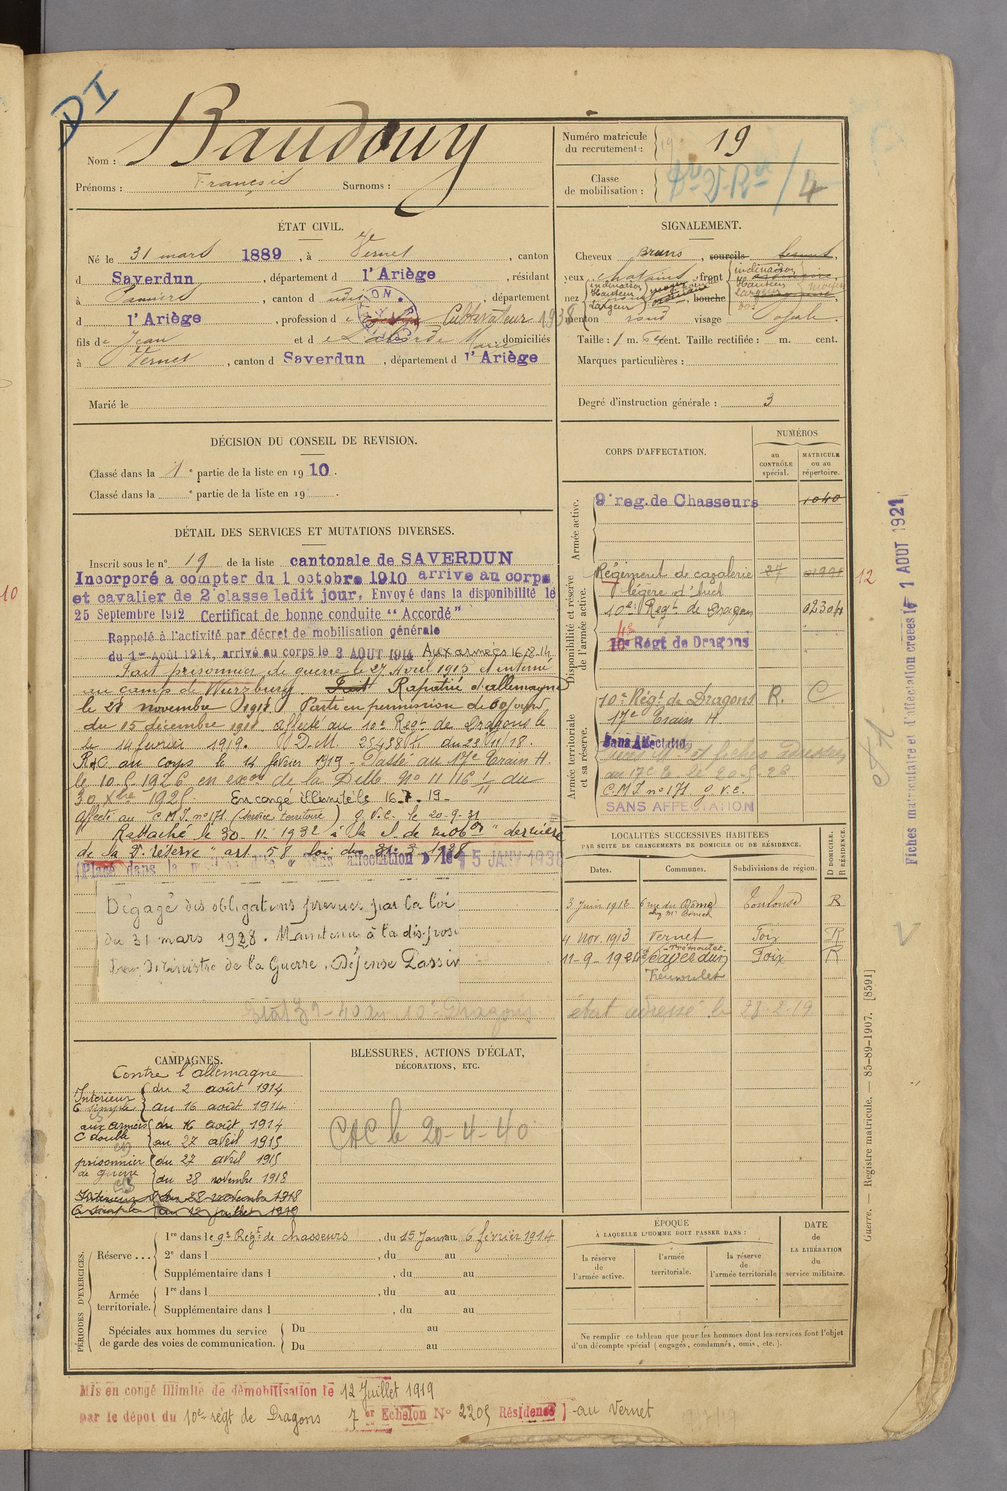 DI
Nom : Baudouy
Prénoms : François Surnoms :
Numéro matricule du recrutement : 19
Classe de mobilisation : / 4
ÉTAT CIVIL.
Né le 31 mars 1889, à Vernet, canton
d Saverdun, département d l'Ariège, résidant
à Pamiers, canton d udit, département
d l'Ariège, profession d e Cultivateur 1938
fils de Jean et d e Laborde Marie domiciliés
à Vernet, canton d Saverdun, département d l'Ariège
Marié le
SIGNALEMENT.
Cheveux bruns, sourcils
yeux chatains, front inclinaison
Hauteur
Largeur
nez
inclinaison
Hauteur
Largeur
, bouche
menton rond visage ovale.
Taille : 1 m. 64 cent. Taille rectifiée : m. cent.
Marques particulières :
Degré d'instruction générale : 3
DÉCISION DU CONSEIL DE REVISION.
Classé dans la 1e partie de la liste en 1910.
Classé dans la e partie de la liste en 19 .
DÉTAIL DES SERVICES ET MUTATIONS DIVERSES.
Inscrit sous le n° 19 de la liste cantonale de SAVERDUN
Incorporé a compter du 1 octobre 1910 arrivé au corps
et cavalier de 2e classe ledit jour. Envoyé dans la disponibilité le
25 Septembre 1912 Certificat de bonne conduite "Accordé"
Rappelé à l'activité par décret de mobilisation générale
du 1er Août 1914, arrivé au corps le 3 AOUT 1914 Aux armées 16-8-14
Fait prisonnier de guerre le 27 Avril 1915 et interné
au camp de Wurzburg. Fait Rapatrié d'allemagne
le 28 novembre 1918. Parti en permission de 60 jours
du 15 décembre 1918. Affecté au 10e Regt de Dragons le
le 14 février 1919. D.M. 25438 du 23/11/18.
R.A.C. au corps le 14 février 1919 - Classé au 17e Train H.
le 10.5-1926 en exon de la D.M. No 11116 1/11 du
30 Xbre 1925 En congé illimité le 16-7-19-
affecté au C.M.I. n° 171 (Service territoire) O.V.C. le 20-9-31
Rattaché le 30-11-1932 à la S. de mobon "dernière
de la 2e réserve" art. 58 loi du 31-3-1928
(Placé dans la "Sans affectation" le 15 JANV 1938
Dégagé des obligations prévues par la loi
du 31 mars 1928. Maintenu à la dispos
Ministre de la Guerre. Défense Passiv
CORPS D'AFFECTATION.
NUMÉROS
au CONTRÔLE spécial.
MATRICULE ou au répertoire.
Armée active.
9e reg. de Chasseurs 1040
Disponibilité et réserve de l'armée active.
Régiment de cavalerie 27
légère d'Auch
10e Regt de Dragons 02304
18
10e Regt de Dragons
Armée territoriale et sa réserve.
10e Régt de Dragons R. C
17e Train H
Sans Affectation
au 17e le 20-5-26
C.M.I. n° 171 O.V.C.
SANS AFFECTATION
LOCALITÉS SUCCESSIVES HABITÉES
PAR SUITE DE CHANGEMENTS DE DOMICILE OU DE RÉSIDENCE.
Dates. Communes. Subdivisions de région. D DOMICILE. R RÉSIDENCE.
3 Juin 1912 6 rue du Rome Toulouse R
4 Nov. 1913 Vernet Foix R
11-9-1924 Foix R
Trémoulet
état adressé le 28-2-19
CAMPAGNES.
Contre l'allemagne
Intérieur C simple du 2 août 1914
au 16 août 1914
aux armées C double du 16 août 1914
au 27 avril 1915
prisonnier de guerre du 27 avril 1915
au 28 novembre 1918
Intérieur du 28 novembre 1918
C simple au 12 juillet 1919
BLESSURES, ACTIONS D'ÉCLAT,
DÉCORATIONS, ETC.
CAC le 20-4-40
PÉRIODES D'EXERCICES.
Réserve ...
1re dans le 9e Regt de chasseurs, du 15 Janv au 6 février 1914
2e dans l , du au
Supplémentaire dans l , du au
Armée territoriale.
1re dans l , du au
Supplémentaire dans l , du au
Spéciales aux hommes du service de garde des voies de communication.
Du au
Du au
ÉPOQUE
À LAQUELLE L'HOMME DOIT PASSER DANS :
la réserve de l'armée active.
l'armée territoriale.
la réserve de l'armée territoriale
DATE de LA LIBÉRATION du service militaire.
Ne remplir ce tableau que pour les hommes dont les services font l'objet
d'un décompte spécial (engagés, condamnés, omis, etc.).
Mis en congé illimité de démobilisation le 12 Juillet 1919
par le dépot du 10e régt de Dragons 7er Echelon N° 2205 Résidence -au Vernet
Fiches matriculaire et d'affectation créées le 1 AOUT 1921
Guerre. — Registre matricule. — 85-89-1907. [8591]
12
10